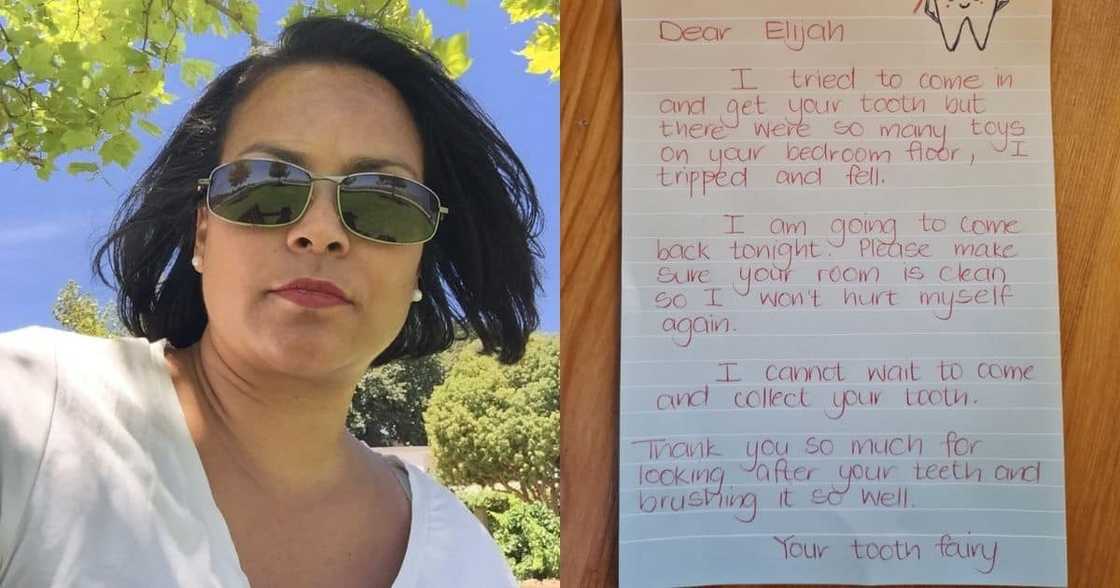 Dear Elijah
I tried to come in
and get your tooth but
there were so many toys
on your bedroom floor, I
tripped and fell.
I am going to come
back tonight. Please make
sure your room is clean
so I won't hurt myself
again.
I cannot wait to come
and collect your tooth.
Thank you so much for
looking after your teeth and
brushing it so well.
Your tooth fairy